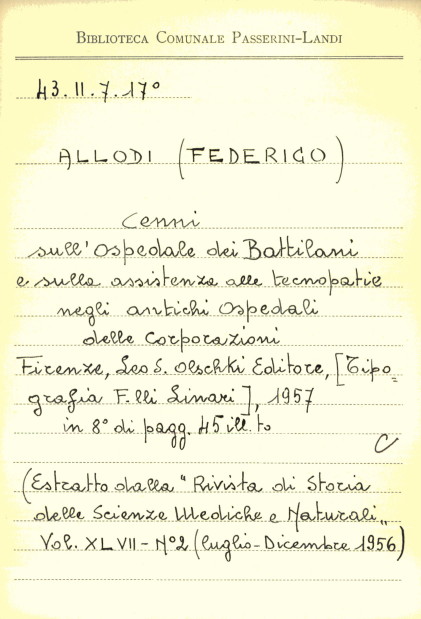 BIBLIOTECA COMUNALE PASSERINI-LANDI
43.II.7.17°
ALLODI (FEDERICO)
Cenni
sull'Ospedale dei Battilani
e sulla assistenza alle tecnopatie
negli antichi Ospedali
delle Corporazioni
Firenze, Leo S. Olschki Editore, [Tipo=
grafia F.lli Linari], 1957
in 8° di pagg. 45 ill.to
C
(Estratto dalla "Rivista di Storia
delle Scienze Mediche e Naturali„
Vol. XLVII - N°2 (luglio-Dicembre 1956)